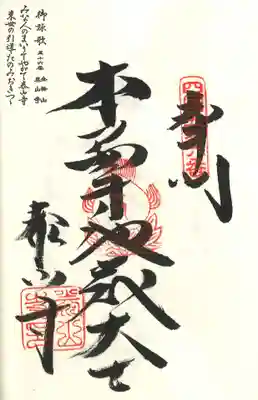 奉納
本尊地蔵大士
泰山寺
御詠歌 五十六番 金輪山 泰山寺
みな人のまいりてやがて泰山寺
来世の引導たのみおきつゝ